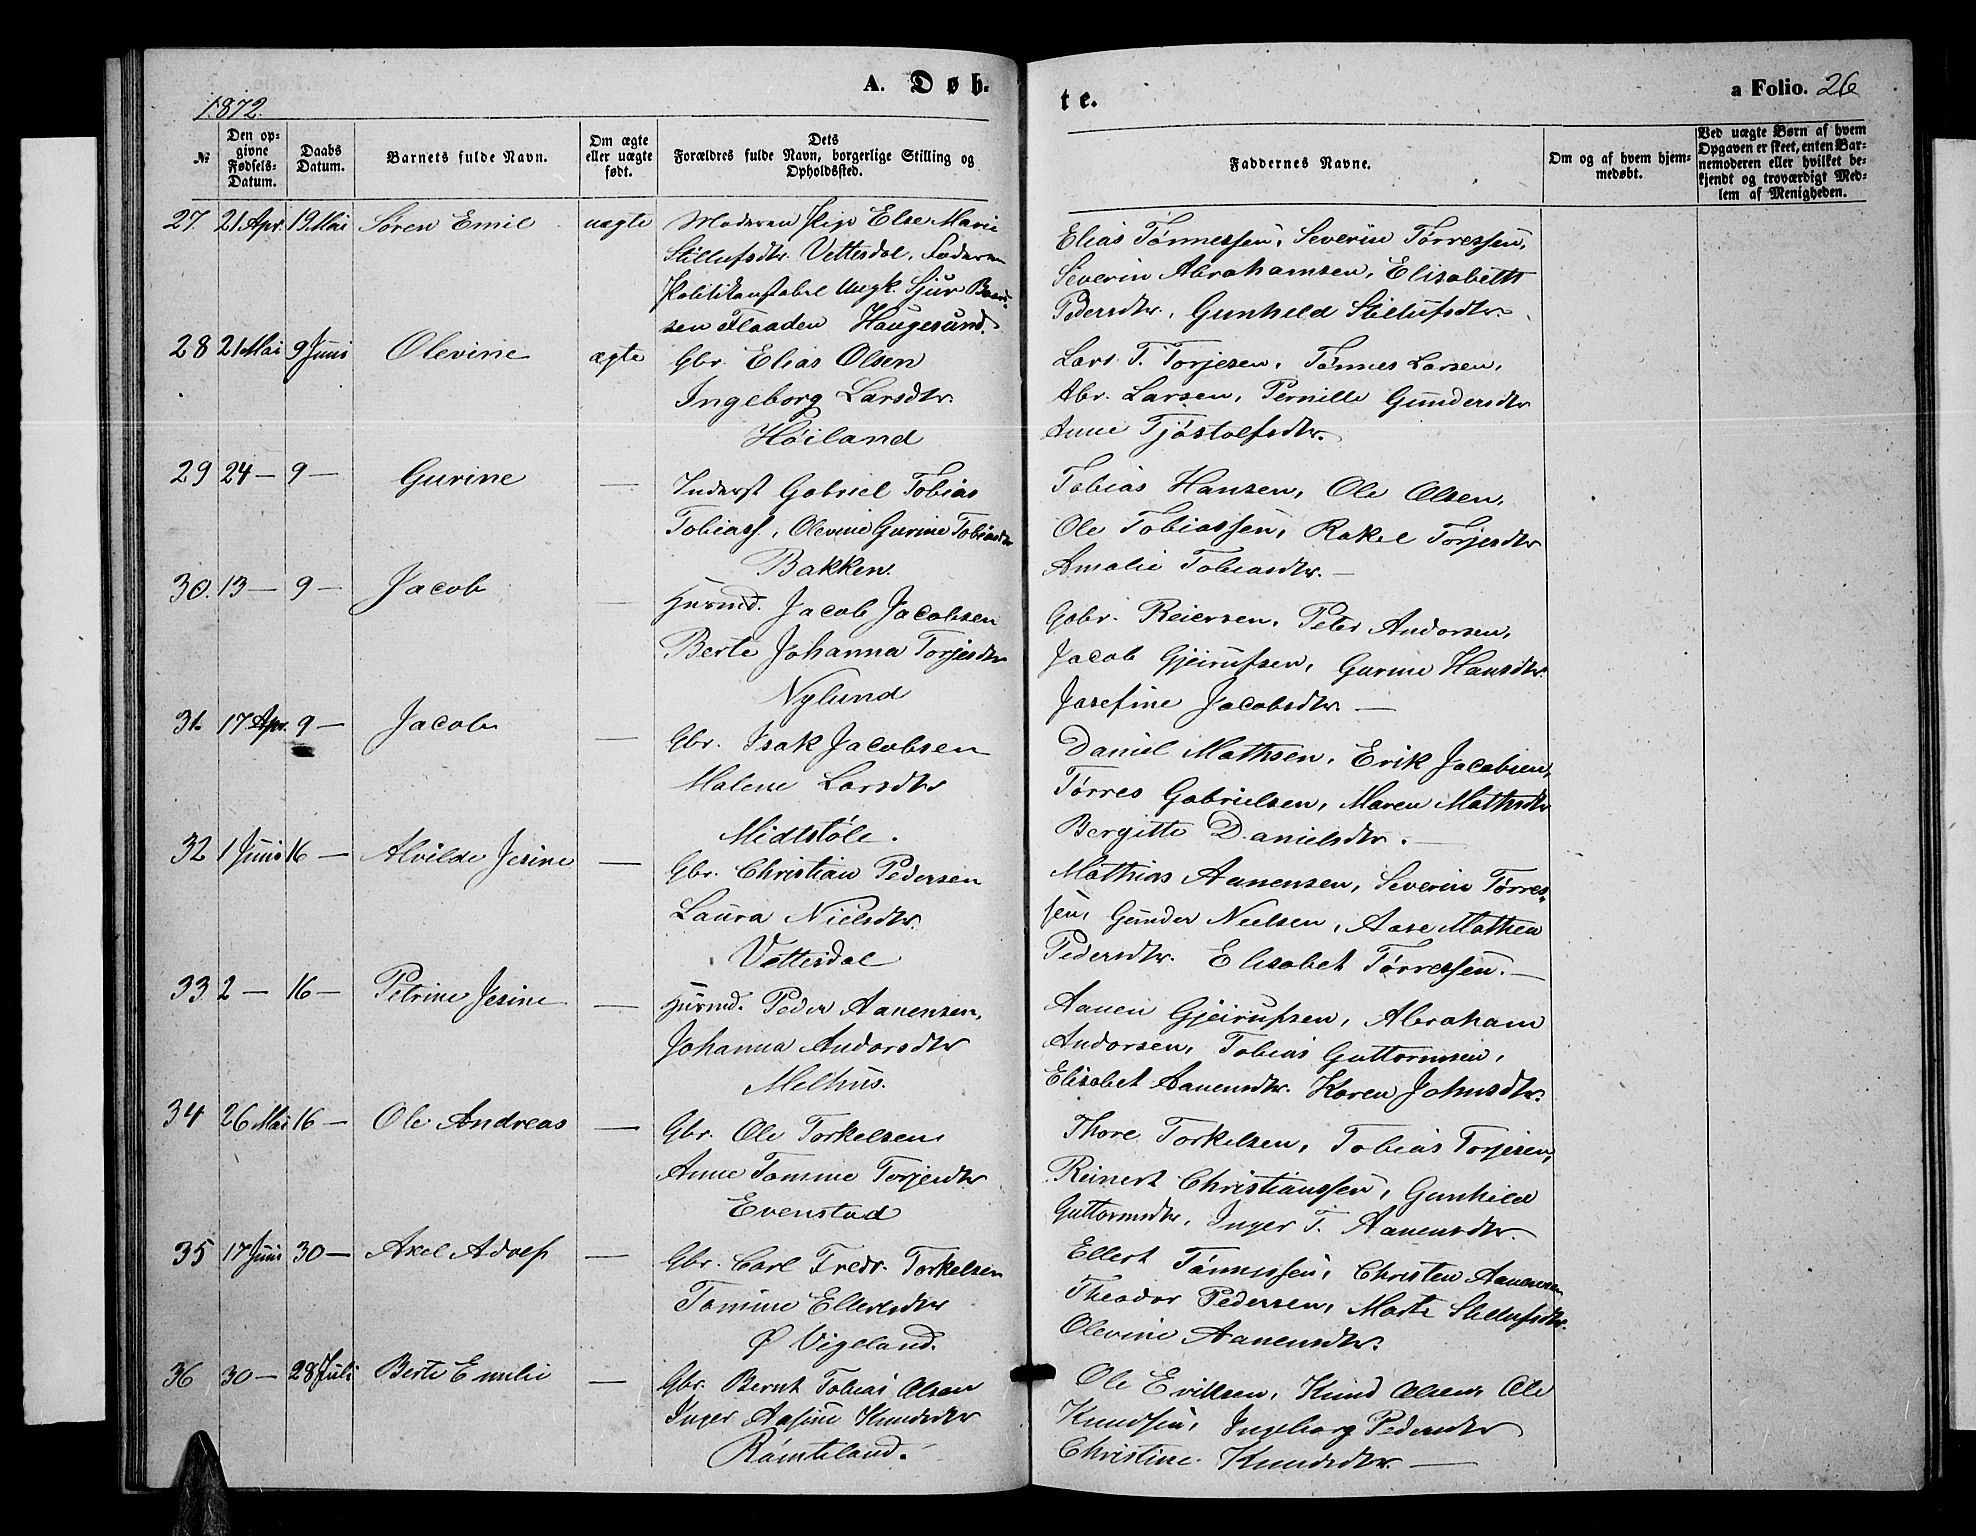 1872.
A. Døb-
te.
a Folio. 26
№
Den op-
givne
Fødsels-
Datum.
Daabs
Datum.
Barnets fulde Navn.
Om ægte
eller uægte
født.
Dets
Forældres fulde Navn, borgerlige Stilling og
Opholdssted.
Faddernes Navne.
Om og af hvem hjem-
medøbt.
Ved uægte Børn af hvem
Opgaven er skeet, enten Bar-
nemoderen eller hvilket be-
kjendt og troværdigt Med-
lem af Menigheden.
27. 21 Apr. 19 Mai Søren Emil uægte
Moderen Pige Else Marie
Stillufsdtr. Vettesdal, Faderen
Politikonstabel Ungk. Sjur
sen Flaaden Haugesund.
Elias Tønnessen, Severin Tørressen,
Severin Abrahamsen, Elisabeth
Pedersdtr., Gunhild Stillufsdtr.
28 21 Mai 9 Juni Olevine ægte
Gbr. Elias Olsen
Ingeborg Larsdtr.
Høiland
Lars T. Torjesen, Tønnes Larsen,
Abr. Larsen, Pernille Gundersdtr
Anne Tjøstolfsdtr.
29 24 — 9 — Gurine —
Inderst Gabriel Tobias
Tobiass., Olevine Gurine Tobiasdtr
Bakken.
Tobias Hansen, Ole Olsen,
Ole Tobiassen, Rakel Torjesdtr
Amalie Tobiasdtr. —
30. 13 — 9 — Jacob —
Husmd. Jacob Jacobsen
Berte Johanna Torjesdtr
Nylund
Gabr. Reiersen, Peter Andorsen,
Jacob Gjerufsen, Gurine Hansdtr.
Josefine Jacobsdtr. —
31. 17 Apr. 9 — Jacob —
Gbr. Isak Jacobsen
Malene Larsdtr
Midtstøle.
Daniel Mathsen, Erik Jacobsen,
Tørres Gabrielsen, Maren Mathsdtr
Bergitte Danielsdtr. —
32 1 Juni 16 — Alvilde Jesine —
Gbr. Christian Pedersen
Laura Nielsdtr.
Vettesdal
Mathias Aanensen, Severin Tørres-
sen, Gunder Neelsen, Aase Mathea
Pedersdtr. Elisabet Tørressen. —
33 2 — 16 — Petrine Jesine —
Husmd. Peder Aanensen,
Johanna Andorsdtr
Melhus.
Aanen Gjerufsen, Abraham
Andorsen, Tobias Guttormsen,
Elisabet Aanensdtr. Karen Johnsdtr.
34 26 Mai 16 — Ole Andreas —
Gbr. Ole Torkelsen
Anne Tomine Torjesdtr
Evenstad
Thore Torkelsen, Tobias Torjesen,
Reinert Christianssen, Gunhild
Guttormsdtr, Inger T. Aanensdtr.
35 17 Juni 30 — Axel Adolf —
Gbr. Carl Fredr. Torkelsen
Tomine Ellertsdtr
Ø Vigeland.
Ellert Tønnessen, Christen Aanensen
Theodor Pedersen, Marte Stillufsdtr.
Olevine Aanensdtr.
36 30 — 28 Juli Berte Emilie —
Gbr. Bernt Tobias Olsen
Inger Aasine Knudsdtr
Røinteland.
Ole Eriksen, Knud Olsen, Ole
Knudsen, Ingeborg Pedersdtr
Christine Knudsdtr. —